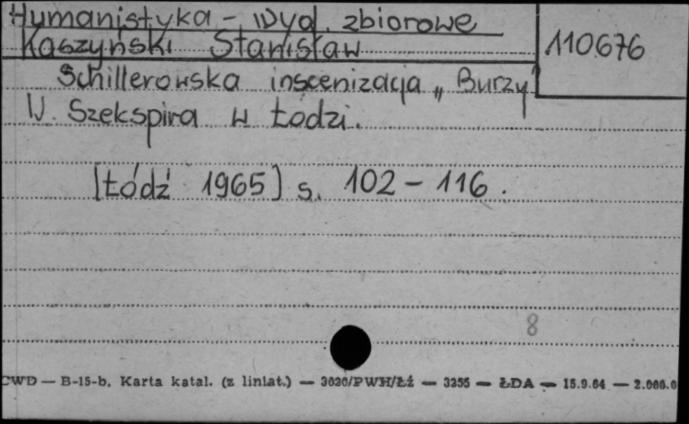 Humanistyka - Wyd. zbiorowe
Kaszyński Stanisław
110676
Schillerowska inscenizacja „Burzy"
W. Szekspira w Łodzi.
[Łódź 1965] s. 102 - 116.
8
CWD — B-15-b. Karta katal. (z liniat.) — 3020/PWH/Łź — 3255 — ŁDA — 15.9.64 — 2.000.0